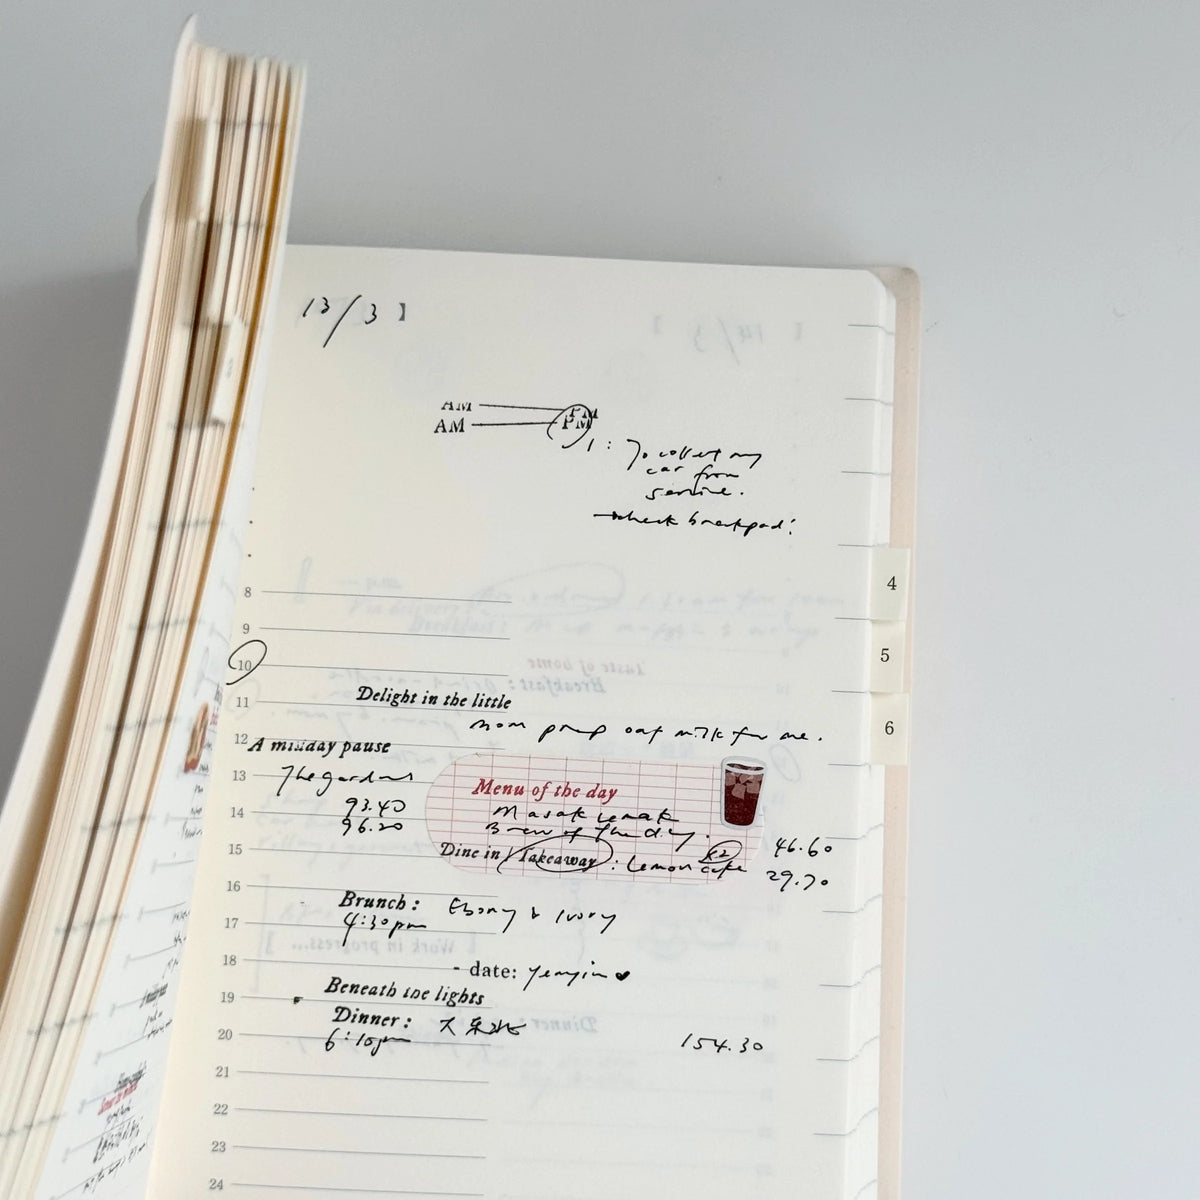 13/3 】
AM PM
AM PM
1: To collect my
car from
service.
→check breakpad!
4
5
6
8
9
10
11
Delight in the little
mom prep oat milk for me.
12
A midday pause
13
The gardens
Menu of the day
93.40
14
Masak Lemak
96.20
Brew of the day.
46.60
15
Dine in / Takeaway : Lemon cake x2
29.70
16
Brunch : Ebony & Ivory
17
4:30pm
18
- date: Yenyin ♥
19
Beneath the lights
Dinner :
20
6:10pm
154.30
21
22
23
24